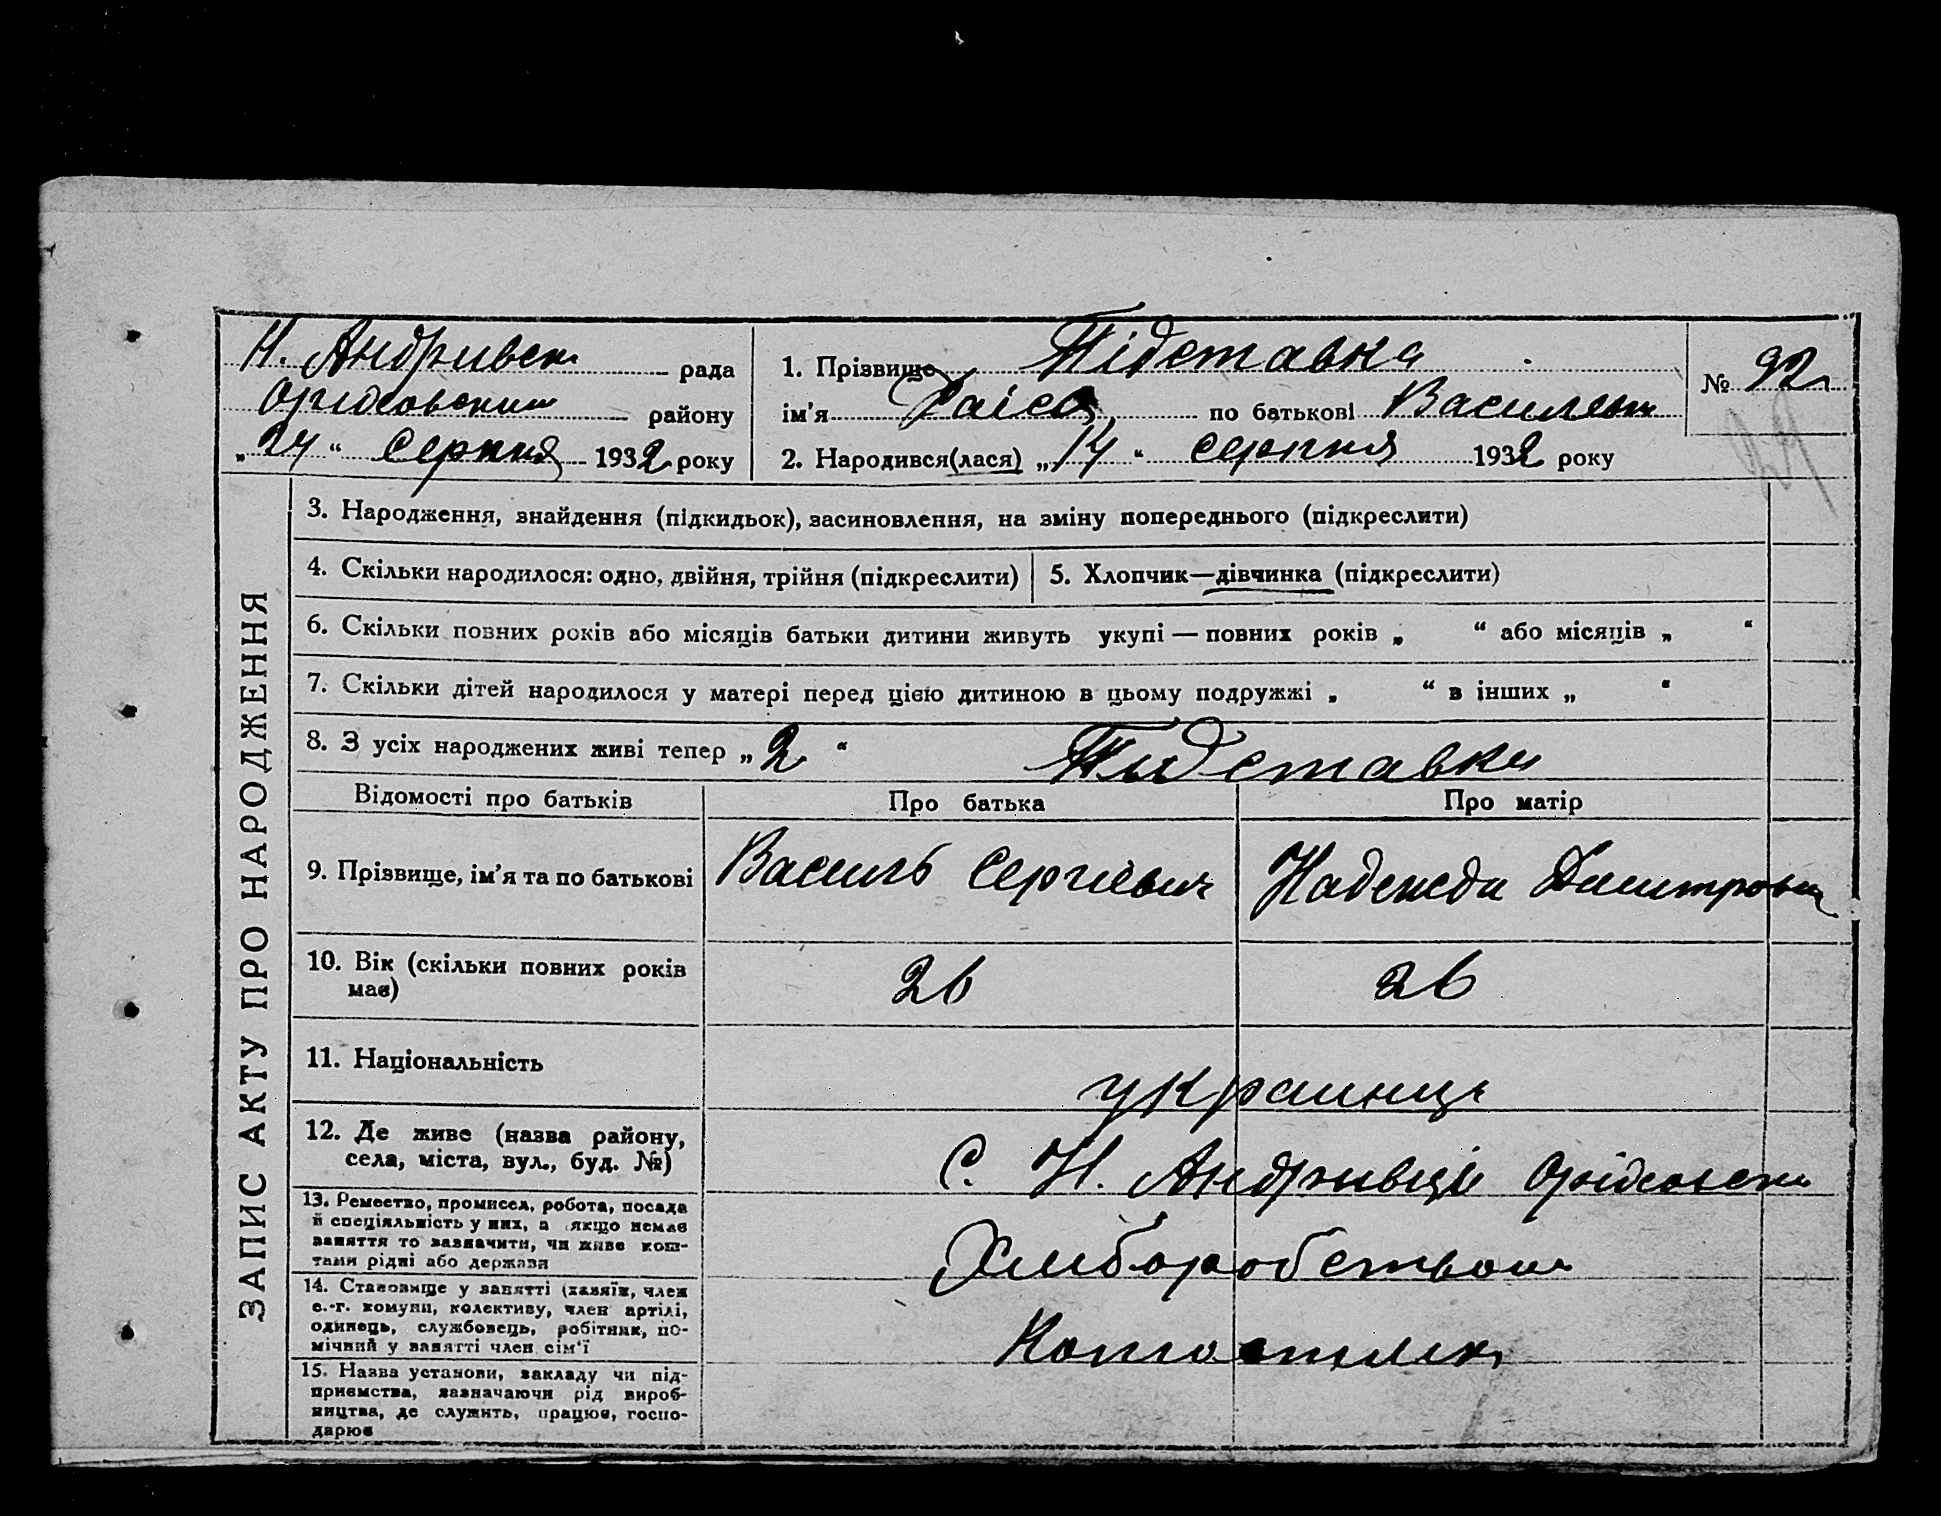 Н. Андриевск рада
Оріховским району
„24“ серпня 1932 року
1. Прізвище Підставка
ім’я Раїса по батькові Василевн
2. Народився(лася) „14“ серпня 1932 року
№ 92
ЗАПИС АКТУ ПРО НАРОДЖЕННЯ
3. Народження, знайдення (підкидьок), засиновлення, на зміну попереднього (підкреслити)
4. Скільки народилося: одно, двійня, трійня (підкреслити)
5. Хлопчик—дівчинка (підкреслити)
6. Скільки повних років або місяців батьки дитини живуть укупі — повних років „ “ або місяців „ “
7. Скільки дітей народилося у матері перед цією дитиною в цьому подружжі „ “ в інших „ “
8. З усіх народжених живі тепер „2“ Підставки
Відомості про батьків
Про батька
Про матір
9. Прізвище, ім’я та по батькові
Василь Сергіевич
Надежда Дмитровна
10. Вік (скільки повних років
має)
26
26
11. Національність
украинці
12. Де живе (назва району,
села, міста, вул., буд. №)
С. Н. Андриевці Оріховськ
13. Ремество, промисел, робота, посада
й спеціяльність у них, а якщо немає
заняття то зазначити, чи живе кош-
тами рідні або держави
Хлиборобством
14. Становище у занятті (хазяїн, член
с.-г. комуни, колективу, член артілі,
одинець, службовець, робітник, по-
мічний у занятті член сім’ї
15. Назва установи, закладу чи під-
приємства, зазначаючи рід вироб-
ництва, де служить, працює, госпо-
дарює